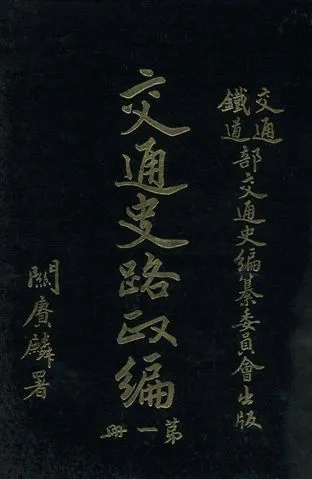 交通
鐵道
部交通史編纂委員會出版
交通史路政編
第一冊
關賡麟署